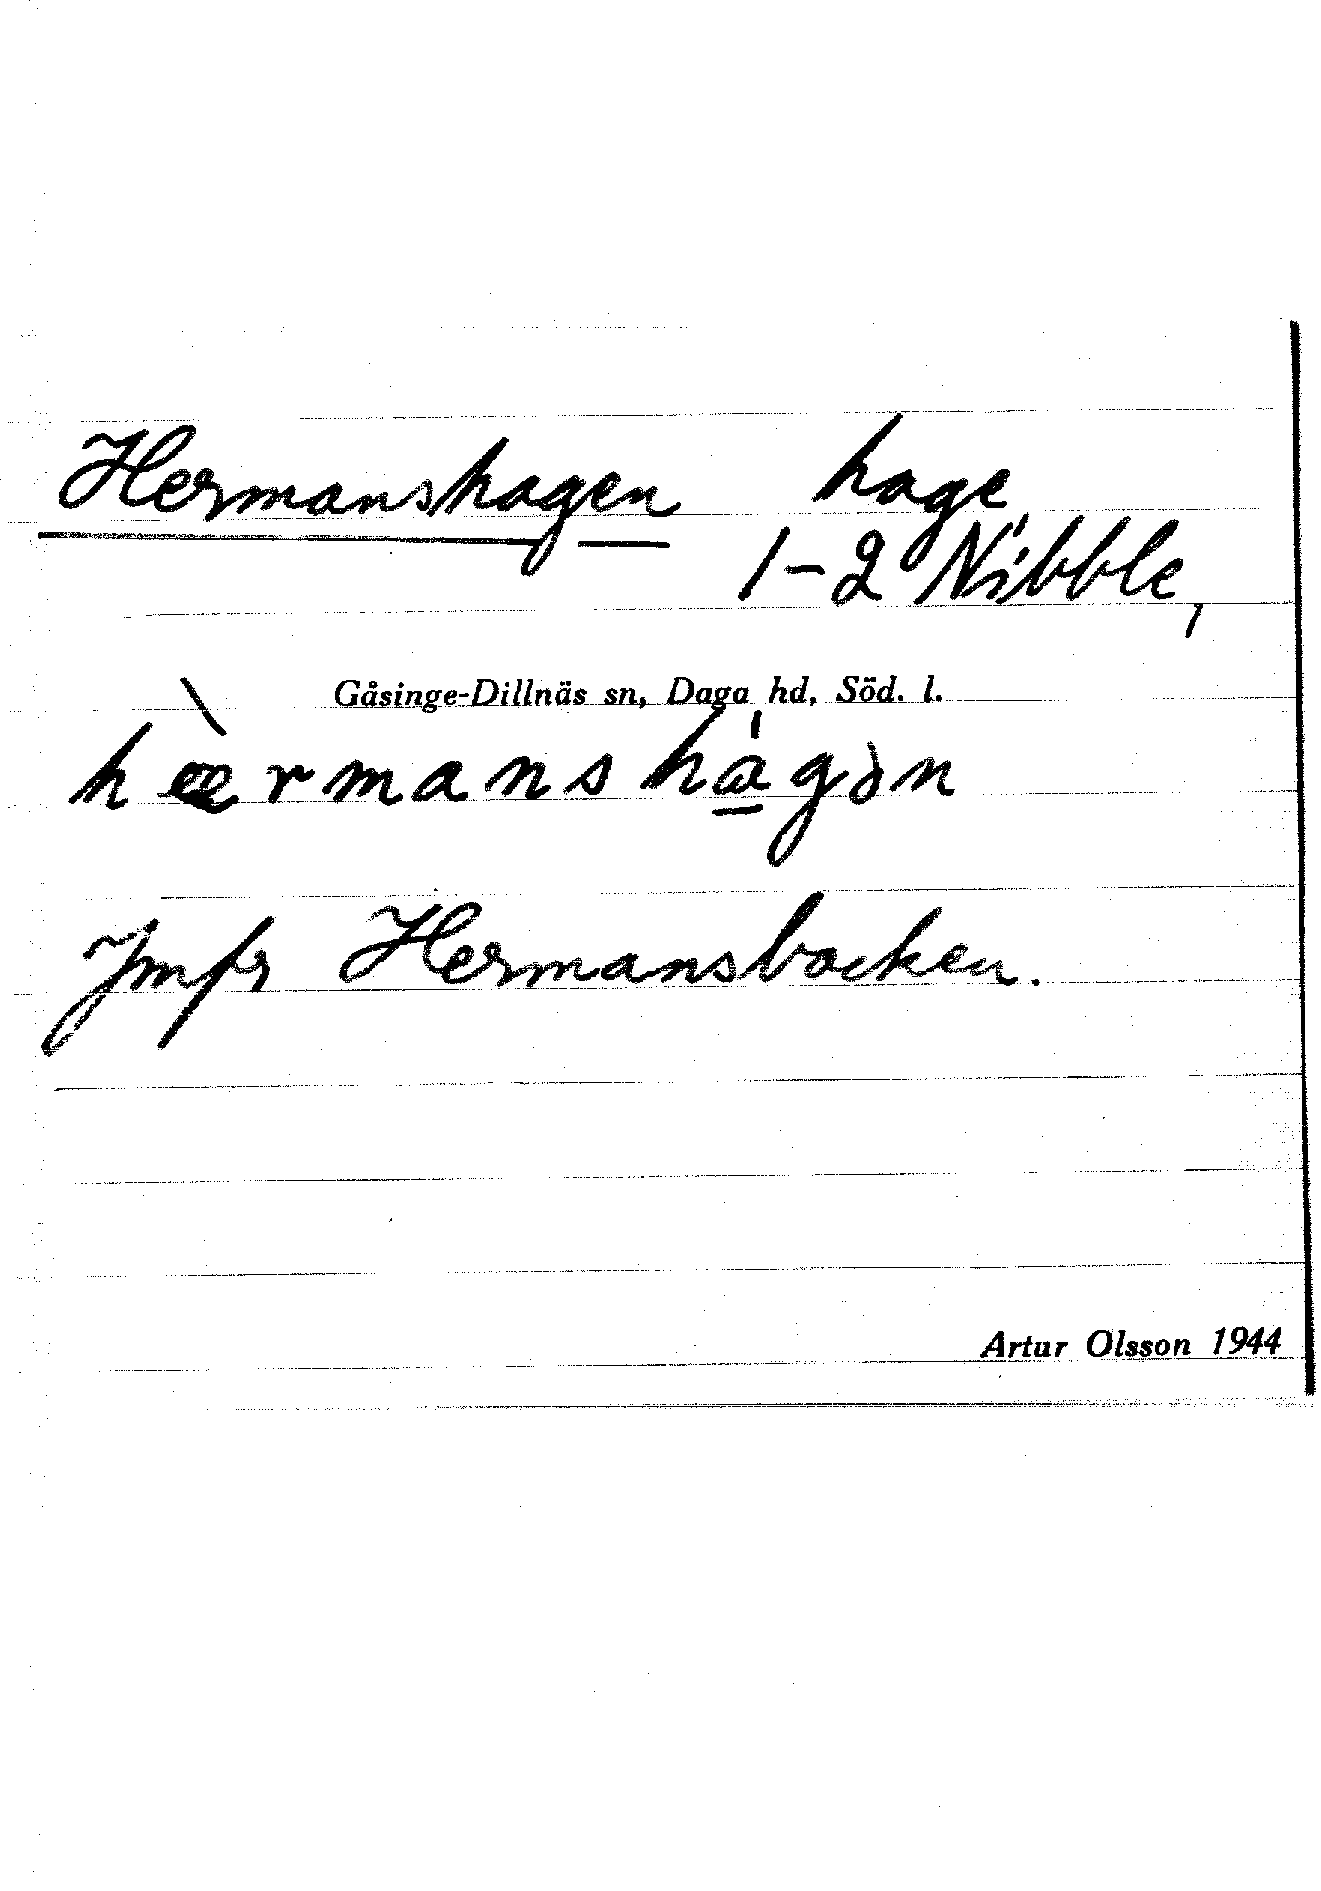 Hermanshagen hage
1-2 Nibble,
Gåsinge-Dillnäs sn, Daga hd, Söd. l.
hæ̀rmanshა̲gən
Jmfr Hermansbacken.
Artur Olsson 1944